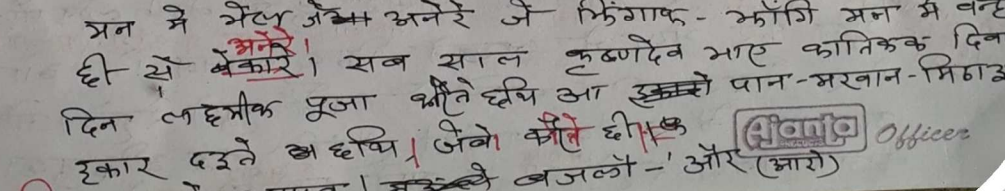 मन मे भेल जेना अनेरे जे झिंगाक - झाँगि मन मे वन्द
अनेरे।
ही से बेकारे। सब साल कृष्णदेव भाए कातिकक दिन
दिन लक्ष्मीक पूजा करैत छथि आ पान-मखान-मिठाइ
हकार दइते छथि। जेबो करैत छी।
Ajanta Officer
बजलौ - 'और (आरो)